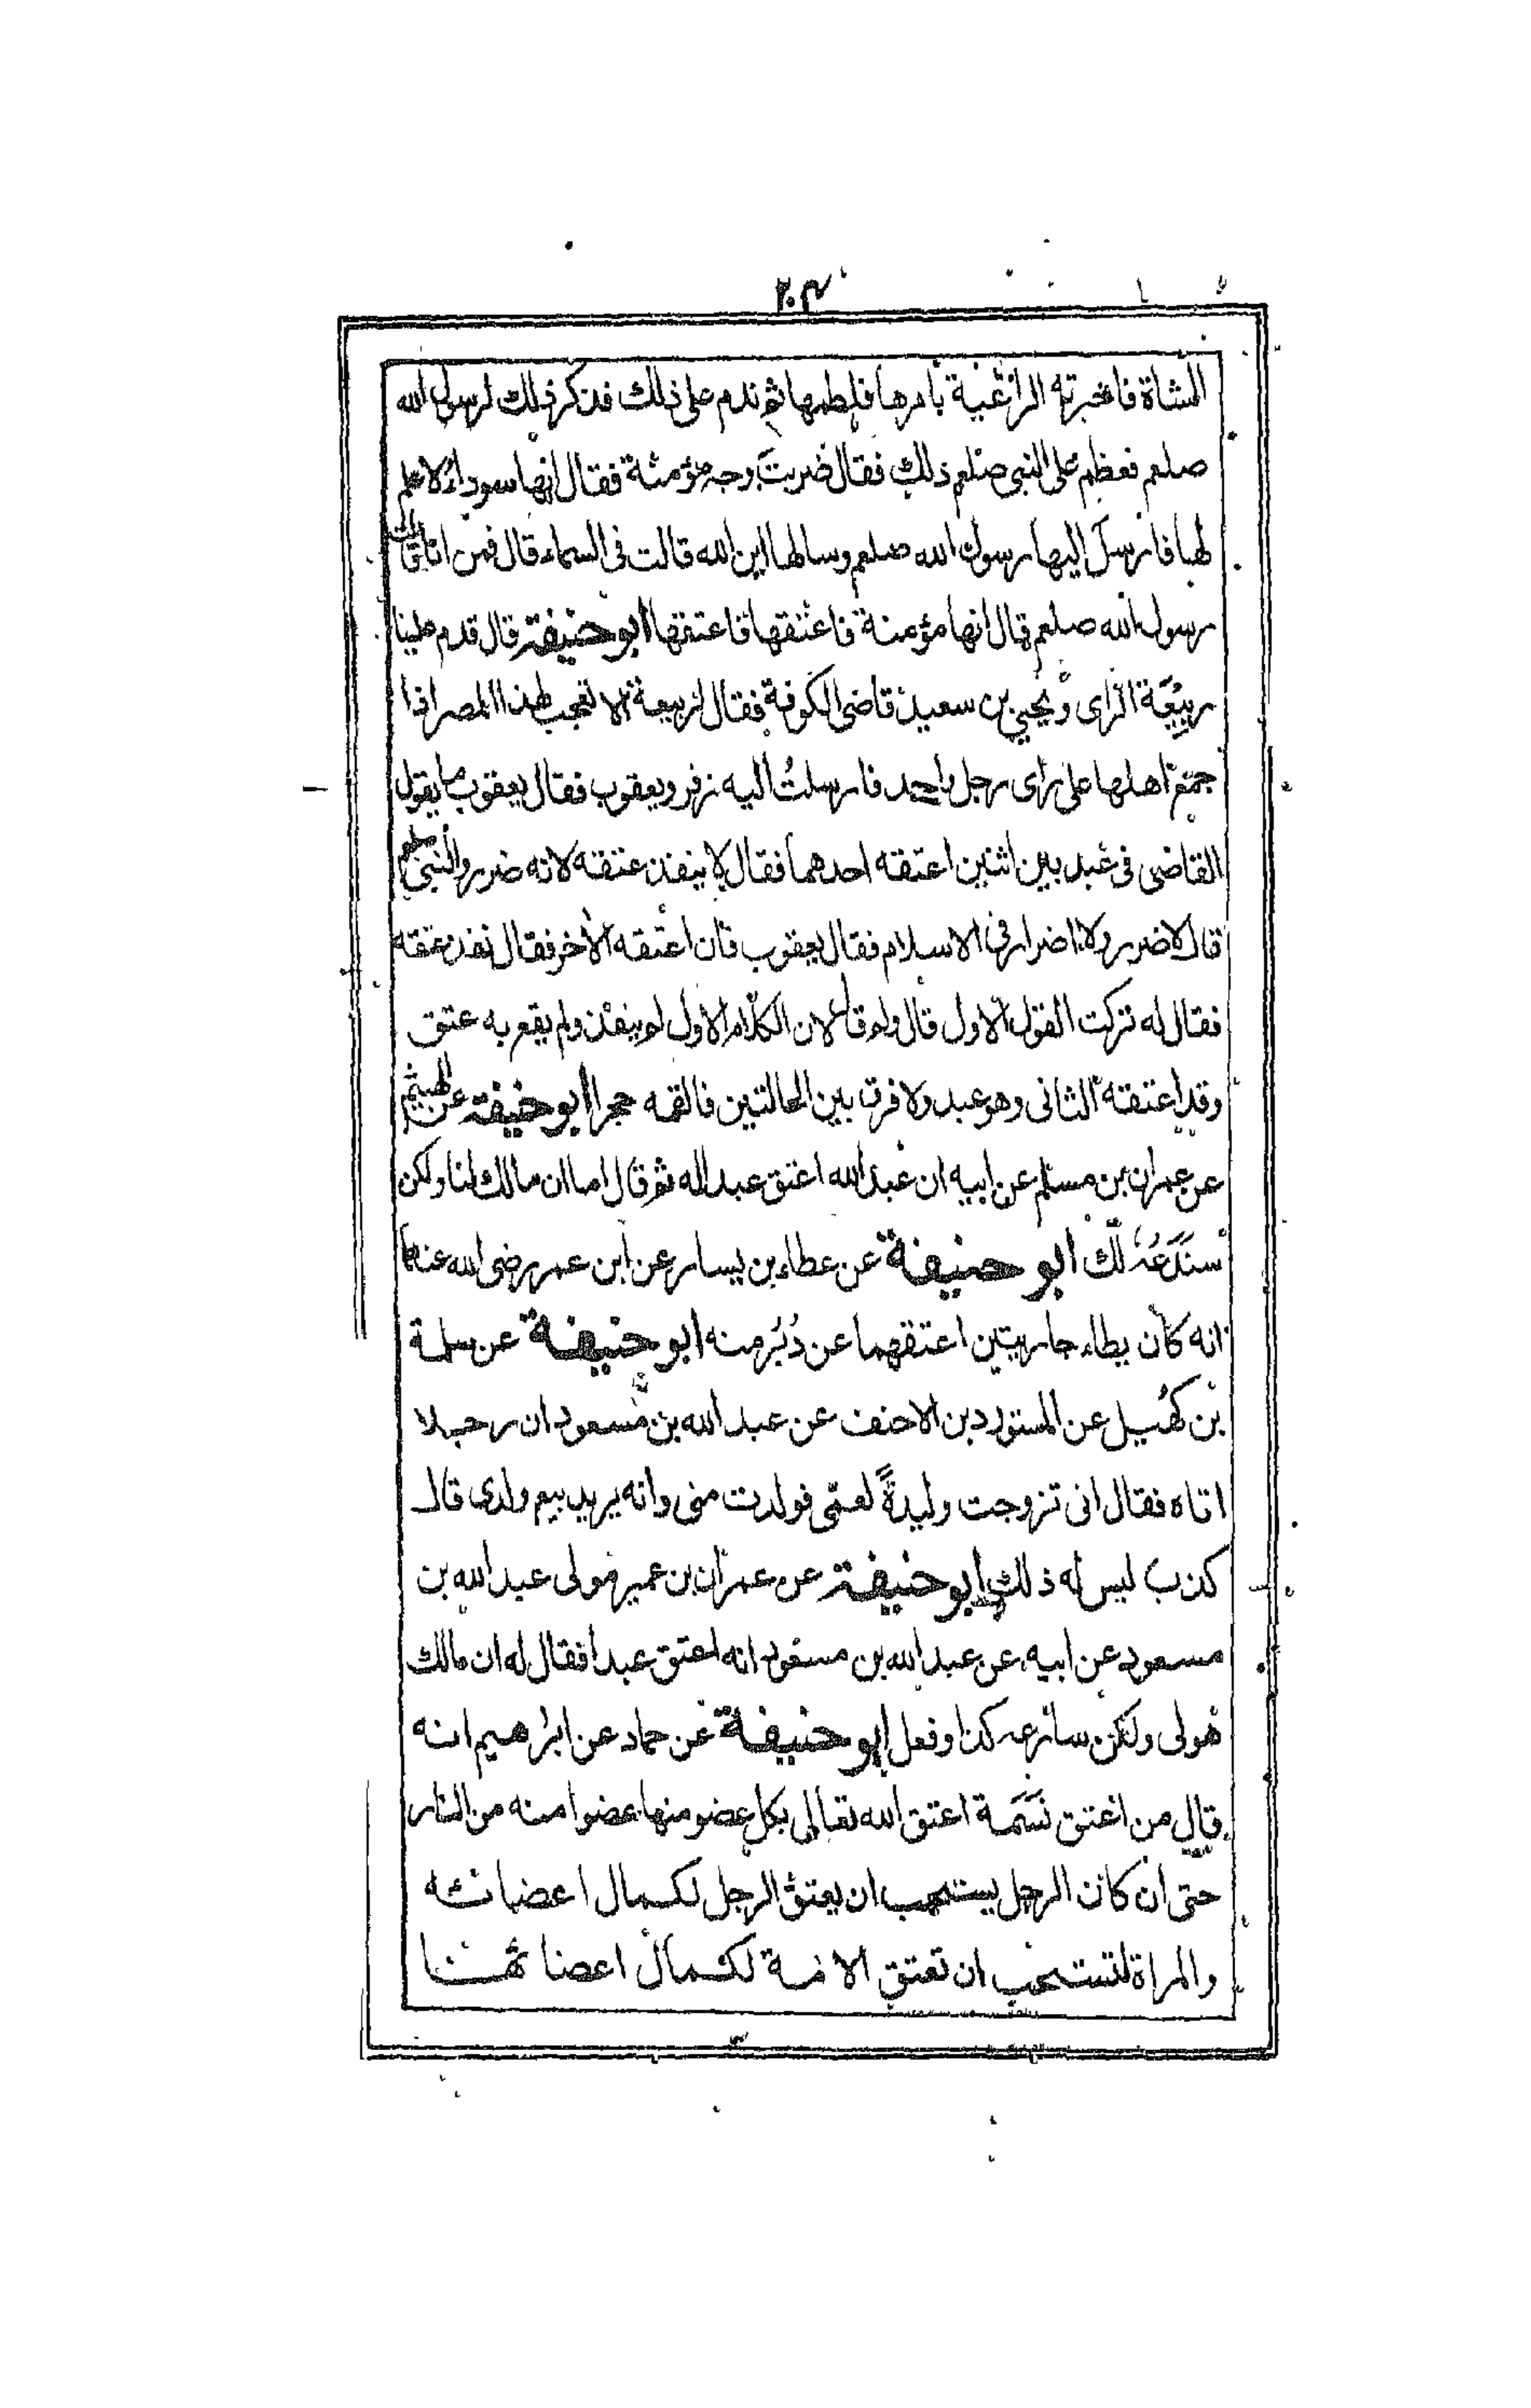 ٢٠٣
الشاة فاخبرته الراعية بامرها فلطمها ثم ندم على ذلك فذكر ذلك لرسول الله
صلعم فعظم على النبي صلعم ذلك فقال ضربتَ وجه مؤمنة فقال انها سوداء لا علم
لها فارسل اليها رسول الله صلعم وسالها اين الله قالت في السماء قال فمن انا قالت
رسول الله صلعم قال انها مؤمنة فاعتقها فاعتقها ابو حنيفة قال قدم علينا
ربيعة الراى ويحيي بن سعيد قاضى الكوفة فقال لربيعة الا تعجب لهذا المصر اذا
جمع اهلها على راى رجل واحد فارسلتُ اليه زفر ويعقوب فقال يعقوب ما يقول
القاضى في عبد بين اثنين اعتقه احدهما فقال لا ينفذ عتقه لانه ضرر والنبي صلعم
قال لا ضرر ولا اضرار في الاسلام فقال يعقوب فان اعتقه الأخر فقال نفذ عتقه
فقال له تركت القول الاول قال ولم قال لان الكلام الاول لم ينفذ ولم يقع به عتق
وقد اعتقه الثانى وهو عبد ولا فرق بين الحالتين فالقمه حجرا ابو حنيفة عن الهيثم
عن عمران بن مسلم عن ابيه ان عبد الله اعتق عبدا له ثم قال اما ان مالك لنا ولكن
سَنَدَعُهُ لك ابو حنيفة عن عطاء بن يسار عن ابن عمر رضى الله عنهما
انه كان يطاء جاريتين اعتقهما عن دُبُر منه ابو حنيفة عن سلمة
بن كهُيل عن المستورد بن الاحنف عن عبد الله بن مسعود ان رجلا
اتاه فقال انى تزوجت وليدةً لعمّى فولدت منى وانه يريد بيع ولدى قال
كذب ليس له ذلك ابو حنيفة عن عمران بن عمير مولى عبد الله بن
مسعود عن ابيه عن عبد الله بن مسعود انه اعتق عبدا فقال له ان مالك
هولى ولكن سادعه كذا وفعل ابو حنيفة عن حماد عن ابرهيم انه
قال من اعتق نَسَمة اعتق الله تعالى بكل عضو منها عضوا منه من النار
حتى ان كان الرجل يستحب ان يعتق الرجل لكمال اعضائه
والمراة لتستحب ان تعتق الامة لكمال اعضائها